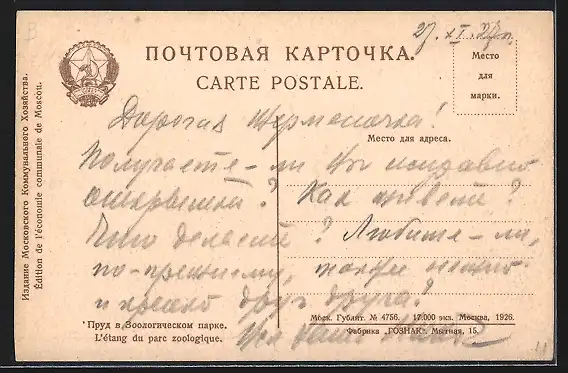 27. XI. 27 г.
ПОЧТОВАЯ КАРТОЧКА.
CARTE POSTALE.
Место
для
марки.
Место для адреса.
Издание Московского Коммунального Хозяйства.
Édition de l'économie communale de Moscou.
Дорогая !
Получаете-ли Вы
открытки? Как живете?
Что делаете? Любите-ли,
по-прежнему, также нежно
и крепко друг друга?
Пруд в Зоологическом парке.
L'étang du parc zoologique.
Моск. Гублит. № 4756. 12.000 экз. Москва, 1926.
Фабрика „ГОЗНАК". Мытная, 15.